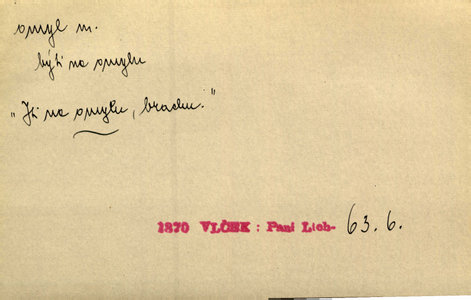 omyl m.
býti na omylu
"Jsi na omylu, bracku."
1870 VLČEK : Paní Lich- 63. 6.